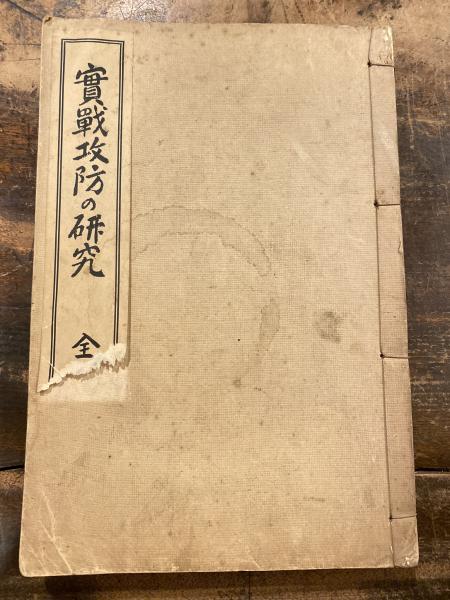 實戰攻防の研究
全